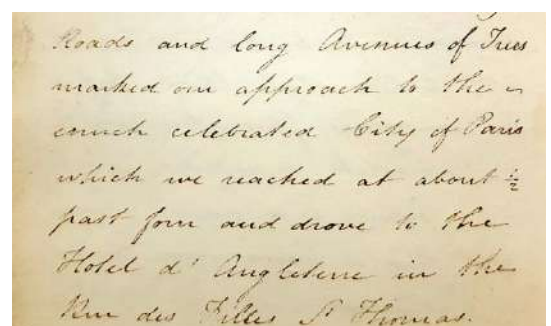 Roads and long Avenues of Trees
marked our approach to the
much celebrated City of Paris
which we reached at about ½
past four and drove to the
Hotel d' Angleterre in the
Rue des Filles St Thomas.